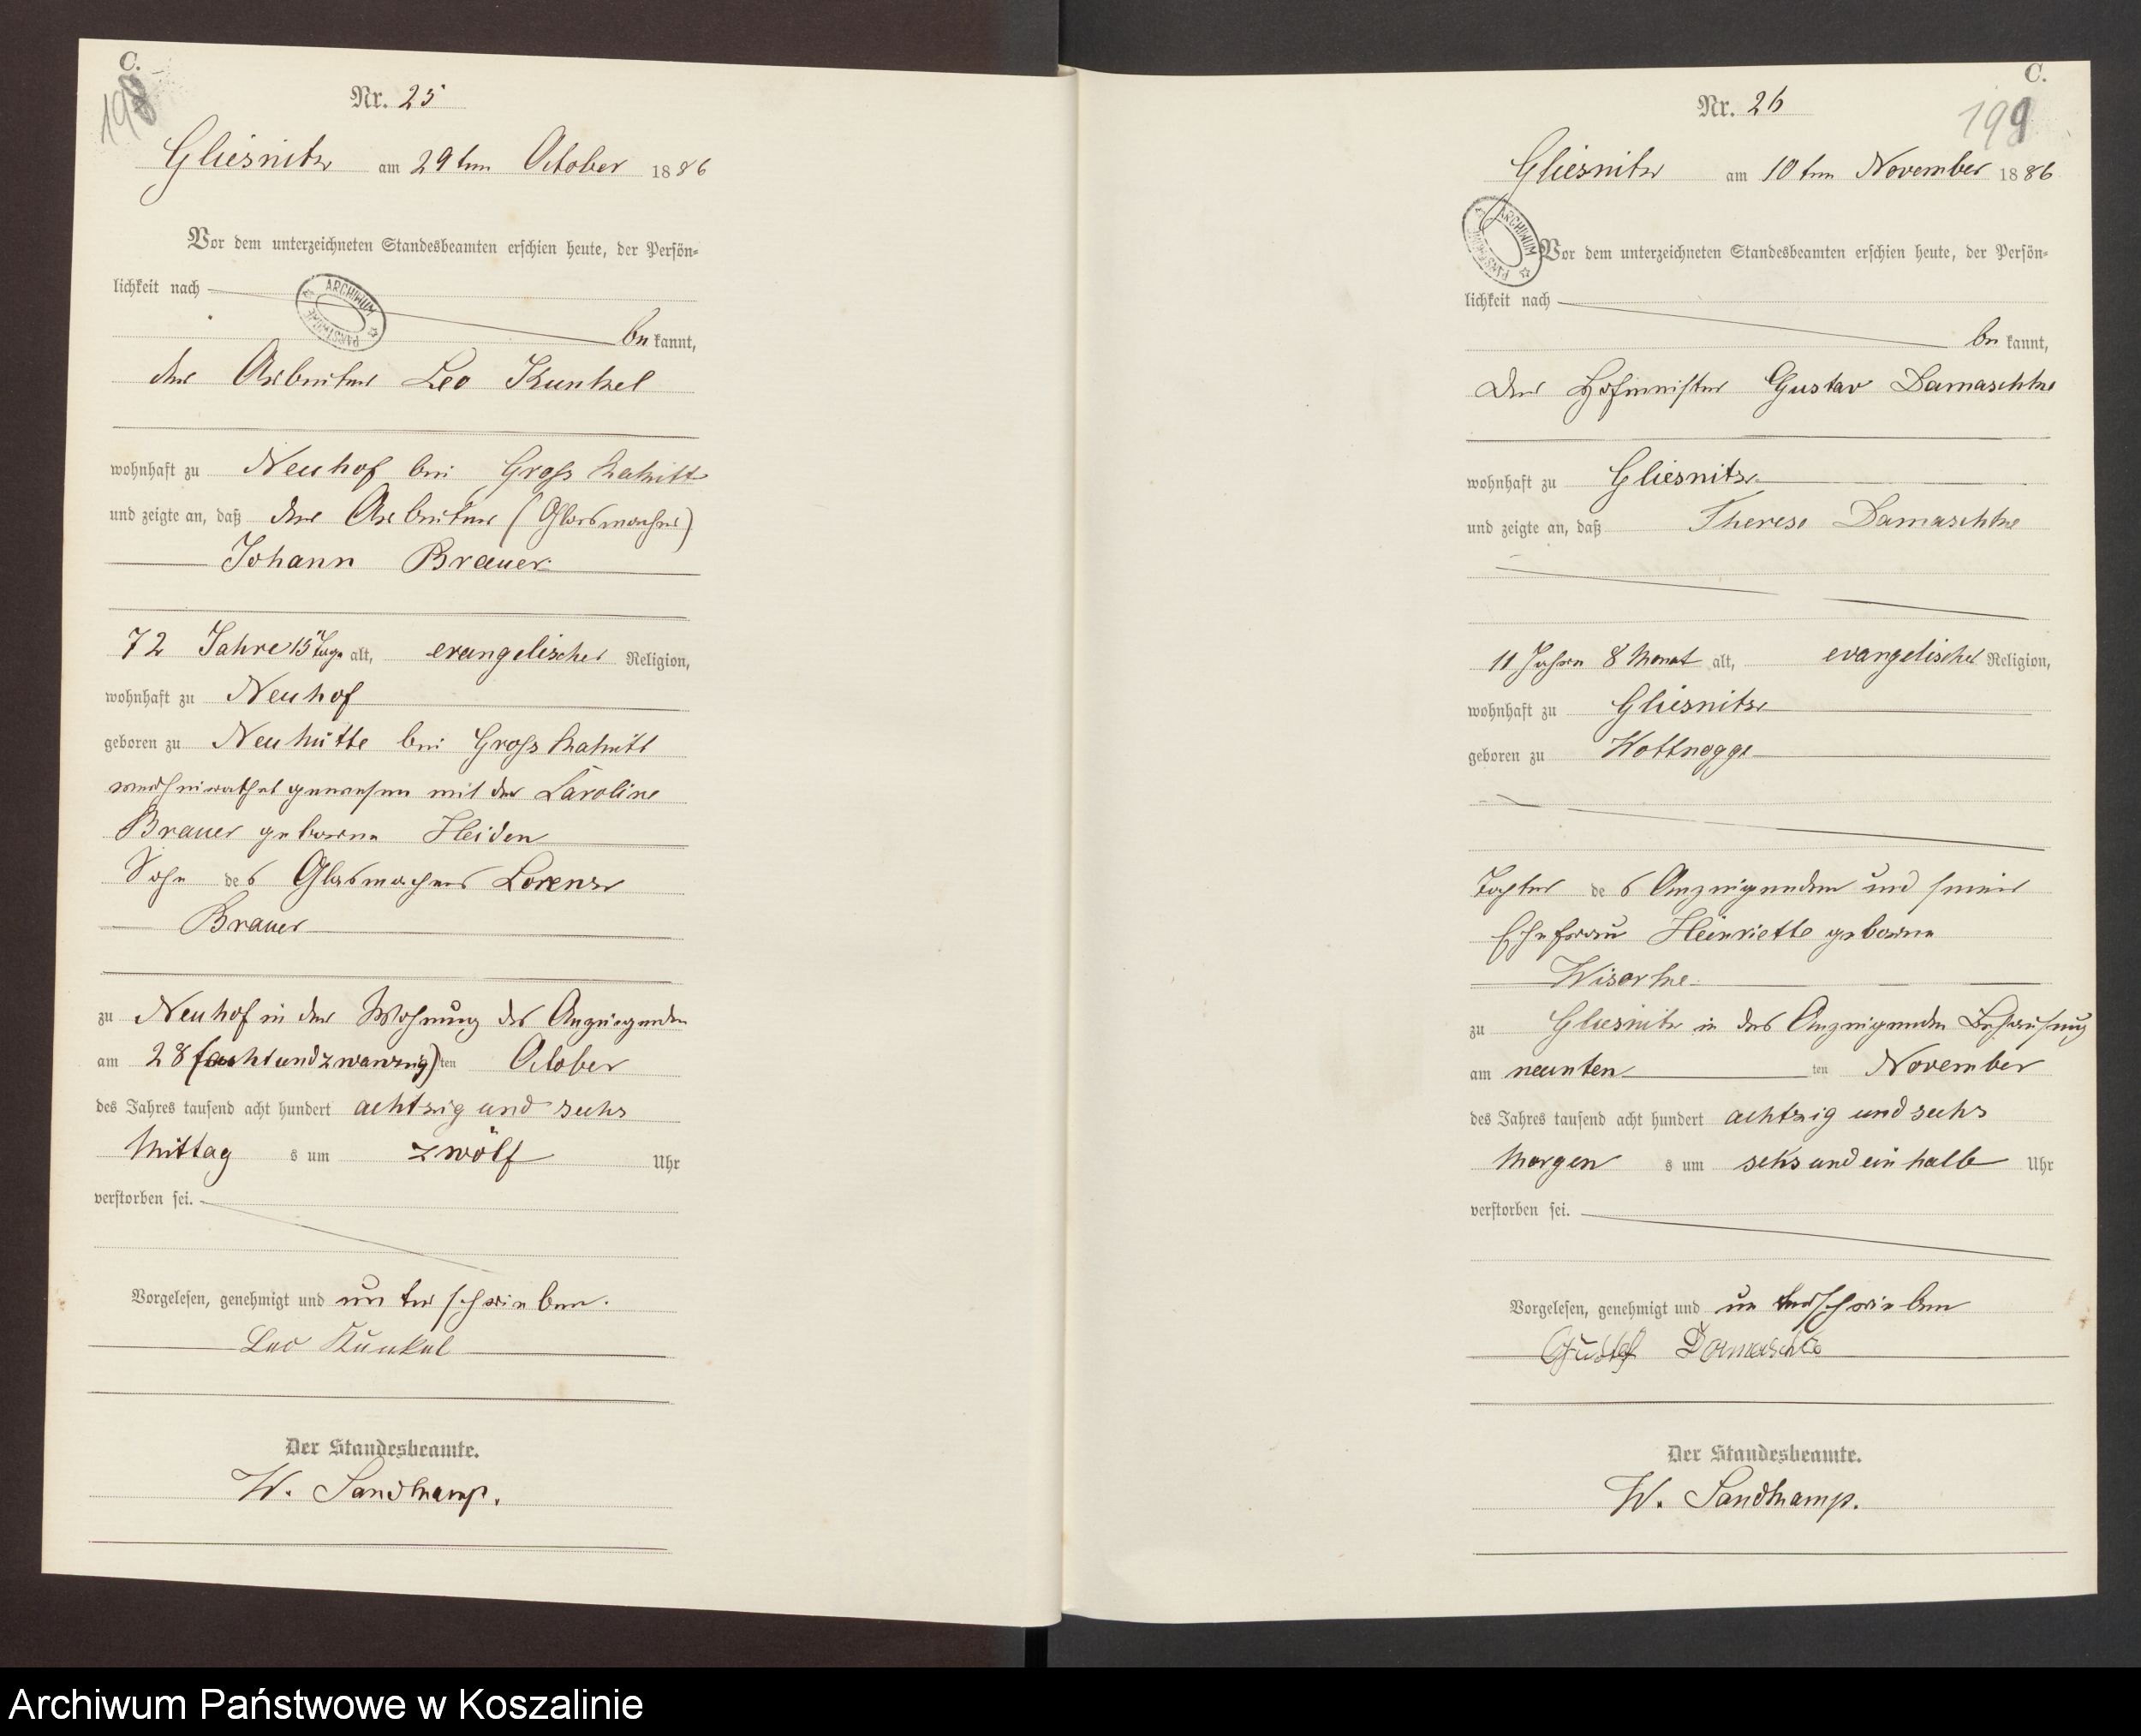 C.
198
Nr. 25
Gliesnitz am 29ten October 1886
Vor dem unterzeichneten Standesbeamten erschien heute, der Persön-
lichkeit nach
ARCHIWUM PAŃSTWOWE
be kannt,
der Arbeiter Leo Kunkel
wohnhaft zu Neuhof bei Gross
und zeigte an, daß der Arbeiter (Glasmacher)
Johann Brauer
72 Jahre 15 Tage alt, evangelischer Religion,
wohnhaft zu Neuhof
geboren zu Neuhütte bei Gross
verheirathet gewesen mit der Caroline
Brauer geborne Heiden
Sohn des Glasmachers Lorenz
Brauer
zu Neuhof in der Wohnung des Anzeigenden
am 28 (achtundzwanzig) ten October
des Jahres tausend acht hundert achtzig und sechs
Mittag s um zwölf Uhr
verstorben sei.
Vorgelesen, genehmigt und unterschrieben.
Leo Kunkel
Der Standesbeamte.
W. Sandkamp.
C.
199
Nr. 26
Gliesnitz am 10ten November 1886
ARCHIWUM PAŃSTWOWE
Vor dem unterzeichneten Standesbeamten erschien heute, der Persön-
lichkeit nach
be kannt,
Der Hofmeister Gustav Damaschke
wohnhaft zu Gliesnitz
und zeigte an, daß Therese Damaschke
11 Jahre 8 Monat alt, evangelischer Religion,
wohnhaft zu Gliesnitz
geboren zu Wottnogge
Tochter des Anzeigenden und seiner
Ehefrau Henriette geborne
zu Gliesnitz in des Anzeigenden Behausung
am neunten ten November
des Jahres tausend acht hundert achtzig und sechs
Morgen s um seks und ein halb Uhr
verstorben sei.
Vorgelesen, genehmigt und unterschrieben
Gustaf Damaschke
Der Standesbeamte.
W. Sandkamp.
Archiwum Państwowe w Koszalinie